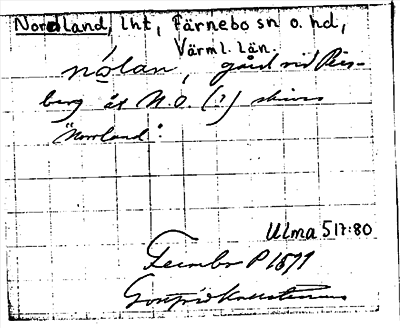 Nordland, lht, Färnebo sn o. hd,
Värml. län.
nólan, gård vid Pers-
berg åt N.O. (?) skrives
"Norrland".
Ulma 517:80
Fernebo P 1611
Gottfrid Kallstenius